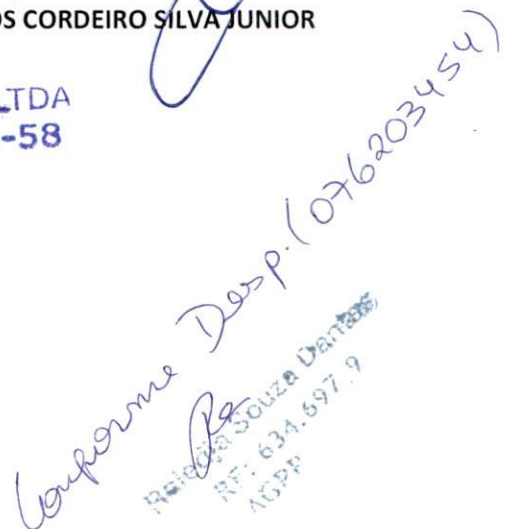 OS CORDEIRO SILVA JUNIOR
LTDA
-58
Conforme Desp. (076203454)
Souza Dantas
RF: 634.697.9
AGPP